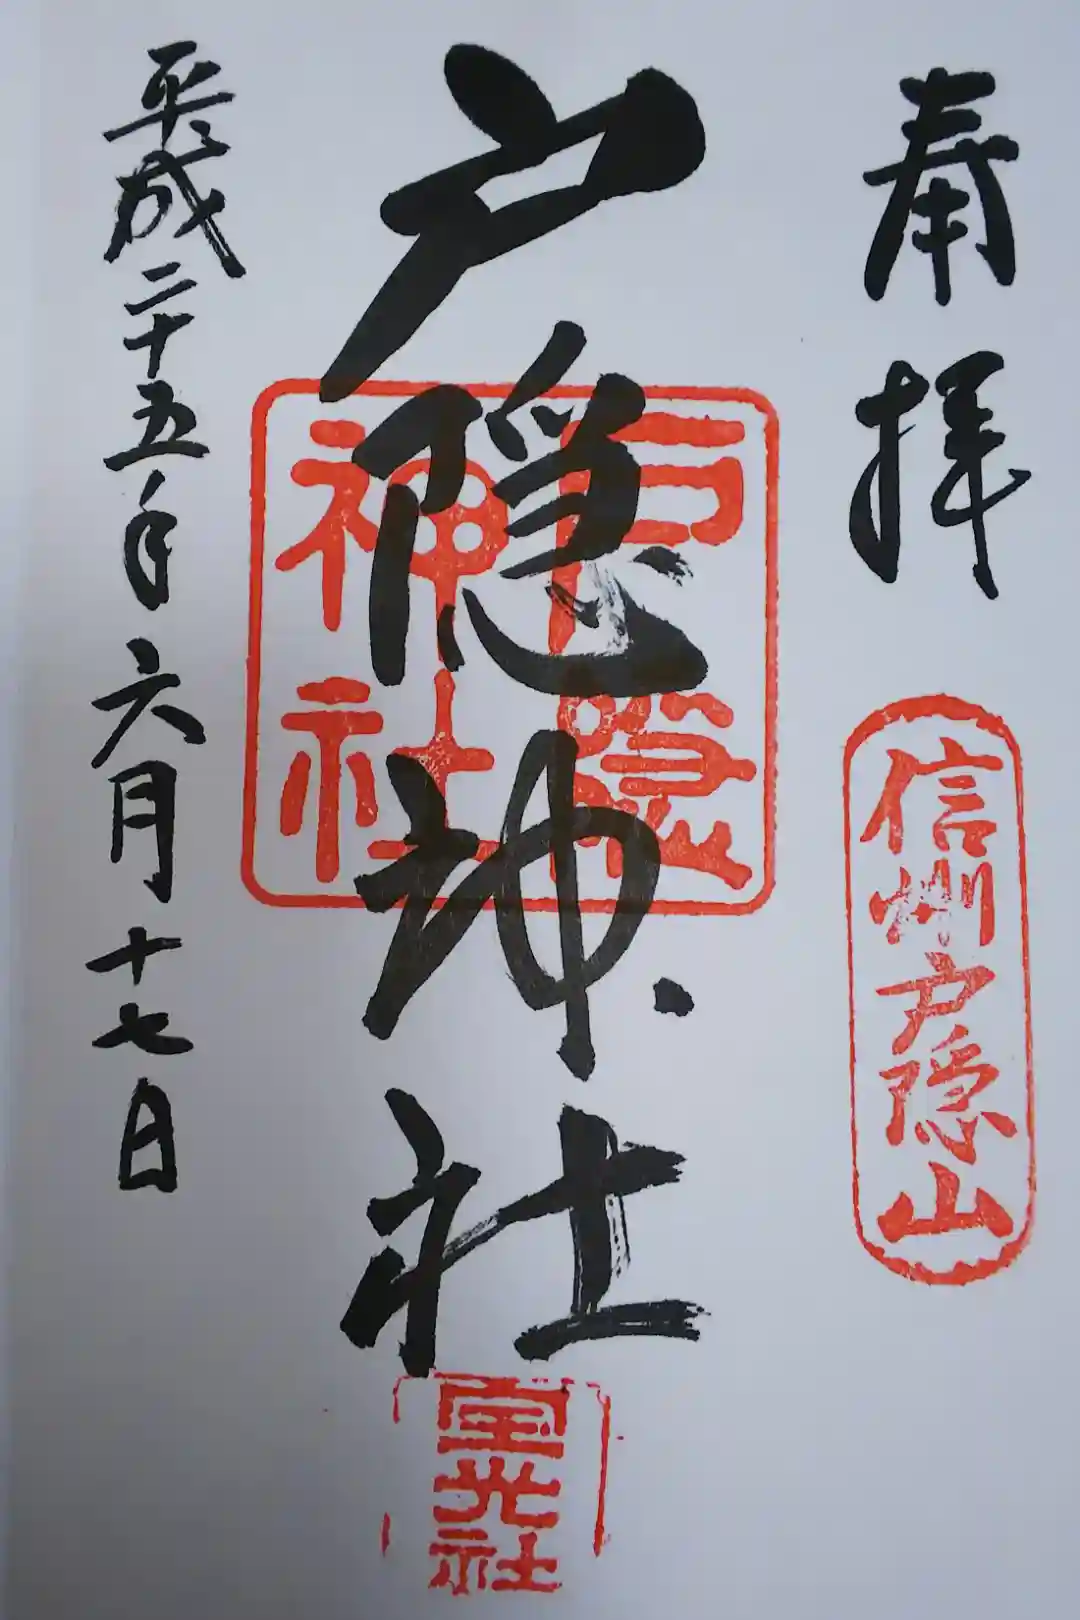 奉拝
信州戸隠山
戸隠神社
戸隠
神社
宝光社
平成二十五年六月十七日